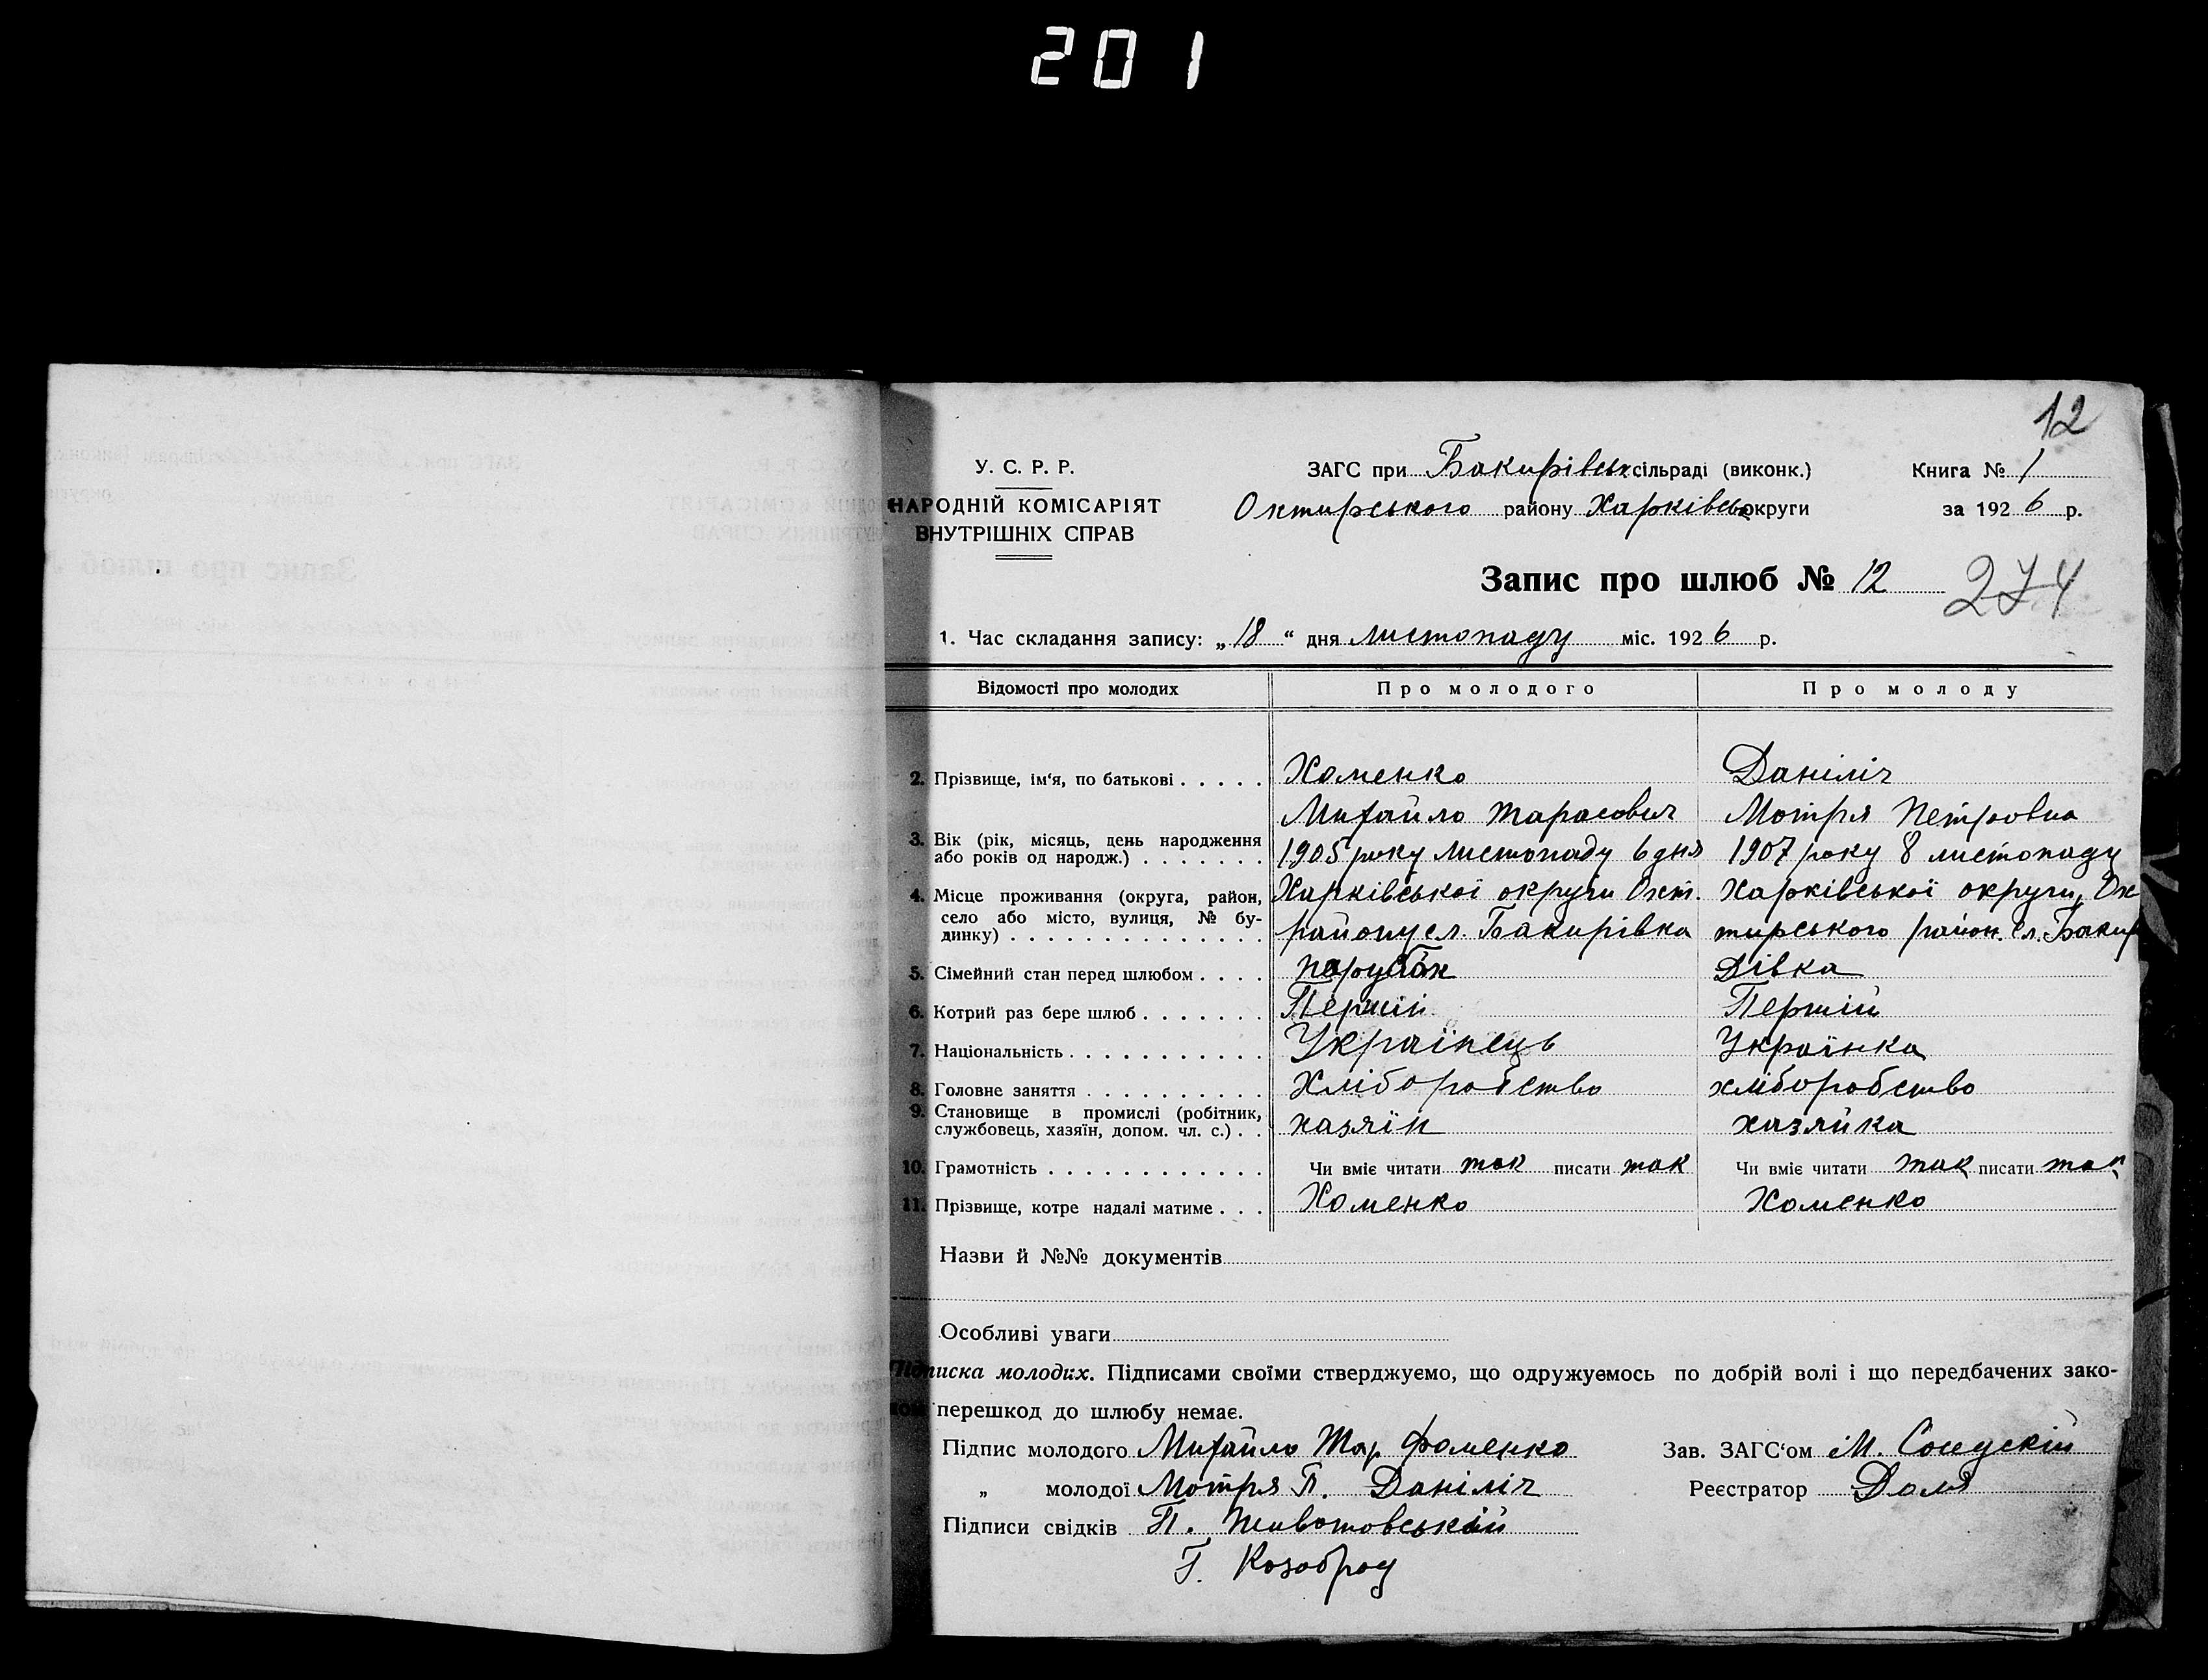 201
12
У. С. Р. Р.
НАРОДНІЙ КОМІСАРІЯТ
ВНУТРІШНІХ СПРАВ
ЗАГС при Бакирівськ. сільраді (виконк.)
Охтирського району Харківськ округи
Книга № 1
за 1926 р.
Запис про шлюб № 12
274
1. Час складання запису: „18“ дня листопаду міс. 1926 р.
Відомості про молодих Про молодого Про молоду
2. Прізвище, ім'я, по батькові . . . . . Хоменко Даніліч
Михайло Тарасович Мотря Петровна
3. Вік (рік, місяць, день народження
або років од народж.) . . . . . . . 1905 року листопаду 6 дня 1907 року 8 листопаду
4. Місце проживання (округа, район, Харківської округи Охт. Харківської округи, Ох
село або місто, вулиця, № бу-
динку) . . . . . . . . . . . . . . району сл. Бакирівка тирського район. сл. Бакир
5. Сімейний стан перед шлюбом . . . . парубок Дівка
6. Котрий раз бере шлюб . . . . . . . Перший Першій
7. Національність . . . . . . . . . . . Українець Українка
8. Головне заняття . . . . . . . . . . Хліборобство хліборобство
9. Становище в промислі (робітник,
службовець, хазяїн, допом. чл. с.) . . хазяїн хазяйка
10. Грамотність . . . . . . . . . . . . Чи вміє читати так писати так Чи вміє читати так писати так
11. Прізвище, котре надалі матиме . . . Хоменко Хоменко
Назви й №№ документів
Особливі уваги
Підписка молодих. Підписами своїми стверджуємо, що одружуємось по добрій волі і що передбачених зако-
ном перешкод до шлюбу немає.
Підпис молодого Михайло Тар Фоменко
„ молодої Мотря П. Даніліч
Підписи свідків П. Животовський
Г. Козоброд
Зав. ЗАГС‘ом М.
Реєстратор Доля